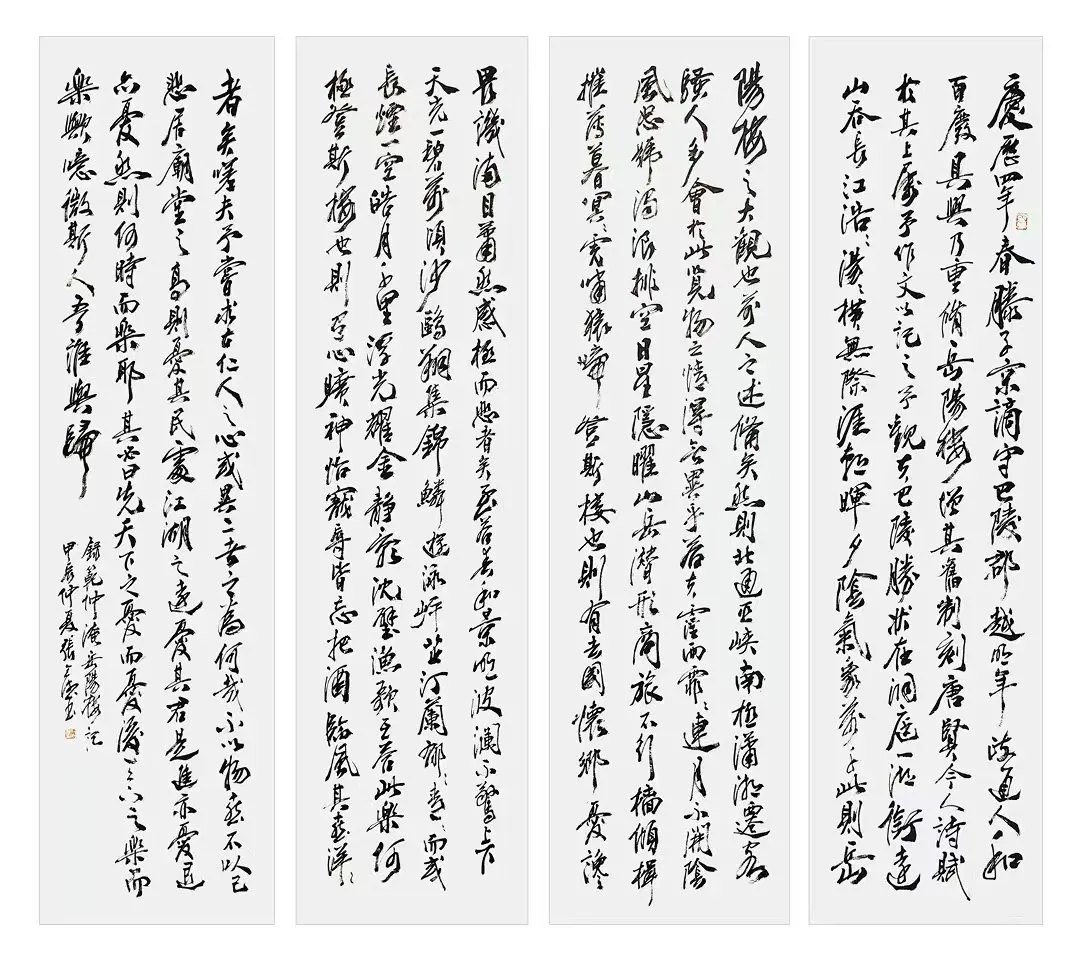 慶歷四年春滕子京謫守巴陵郡越明年政通人和
百廢具興乃重脩岳陽樓增其舊制刻唐賢今人詩賦
於其上屬予作文以記之予觀夫巴陵勝狀在洞庭一湖銜遠
山吞長江浩浩湯湯橫無際涯朝暉夕陰氣象萬千此則岳
陽樓之大觀也前人之述備矣然則北通巫峽南極瀟湘遷客
騷人多會於此覽物之情得無異乎若夫霪雨霏霏連月不開陰
風怒號濁浪排空日星隱曜山岳潛形商旅不行檣傾楫
摧薄暮冥冥虎嘯猿啼登斯樓也則有去國懷鄉憂讒
畏譏滿目蕭然感極而悲者矣至若春和景明波瀾不驚上下
天光一碧萬頃沙鷗翔集錦鱗游泳岸芷汀蘭郁郁青青而或
長煙一空皓月千里浮光耀金靜影沈璧漁歌互答此樂何
極登斯樓也則有心曠神怡寵辱皆忘把酒臨風其喜洋洋
者矣嗟夫予嘗求古仁人之心或異二者之為何哉不以物喜不以己
悲居廟堂之高則憂其民處江湖之遠憂其君是進亦憂退
亦憂然則何時而樂耶其必曰先天下之憂而憂後天下之樂而
樂歟噫微斯人吾誰與歸
錄範仲淹岳陽樓記
甲辰仲夏張